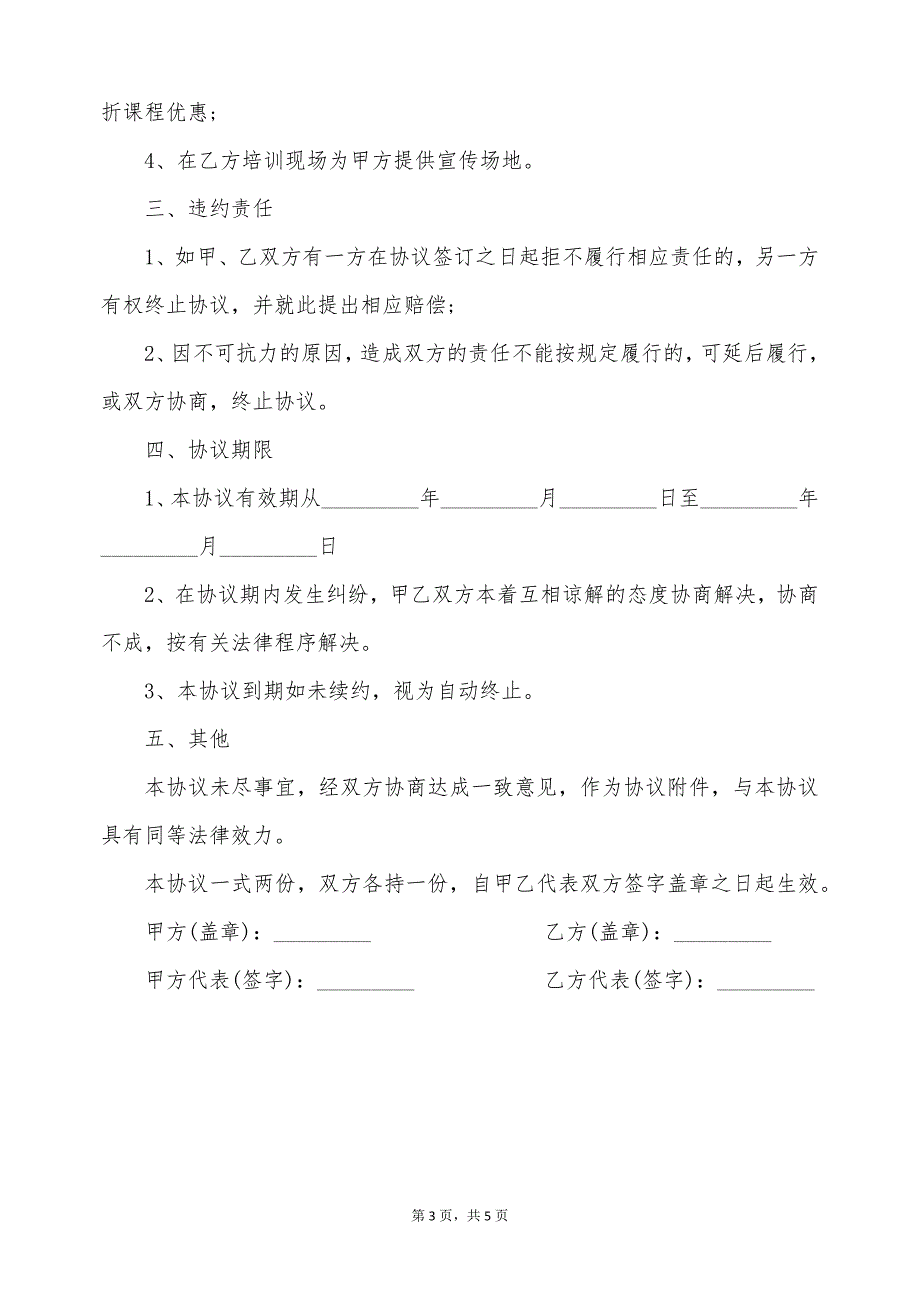 折课程优惠;
4、在乙方培训现场为甲方提供宣传场地。
三、违约责任
1、如甲、乙双方有一方在协议签订之日起拒不履行相应责任的，另一方
有权终止协议，并就此提出相应赔偿;
2、因不可抗力的原因，造成双方的责任不能按规定履行的，可延后履行，
或双方协商，终止协议。
四、协议期限
1、本协议有效期从_________年_________月_________日至_________年
_________月_________日
2、在协议期内发生纠纷，甲乙双方本着互相谅解的态度协商解决，协商
不成，按有关法律程序解决。
3、本协议到期如未续约，视为自动终止。
五、其他
本协议未尽事宜，经双方协商达成一致意见，作为协议附件，与本协议
具有同等法律效力。
本协议一式两份，双方各持一份，自甲乙代表双方签字盖章之日起生效。
甲方(盖章)：_________ 乙方(盖章)：_________
甲方代表(签字)：_________ 乙方代表(签字)：_________
第 3 页，共 5 页